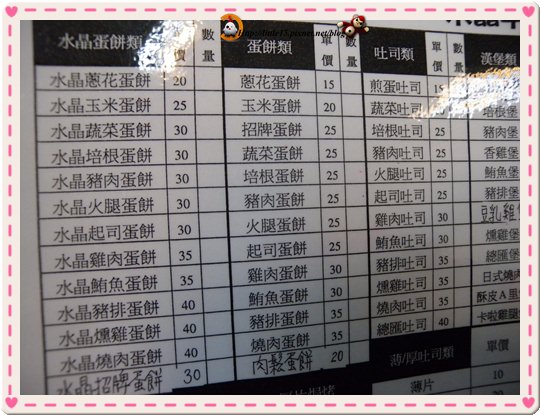 水晶蛋餅類 單價 數量
水晶蔥花蛋餅 20
水晶玉米蛋餅 25
水晶蔬菜蛋餅 30
水晶培根蛋餅 30
水晶豬肉蛋餅 30
水晶火腿蛋餅 30
水晶起司蛋餅 30
水晶雞肉蛋餅 35
水晶鮪魚蛋餅 35
水晶豬排蛋餅 40
水晶燻雞蛋餅 40
水晶燒肉蛋餅 40
水晶招牌蛋餅 30
蛋餅類 單價 數量
蔥花蛋餅 15
玉米蛋餅 20
招牌蛋餅 25
蔬菜蛋餅 25
培根蛋餅 25
豬肉蛋餅 25
火腿蛋餅 25
起司蛋餅 25
雞肉蛋餅 30
鮪魚蛋餅 30
豬排蛋餅 35
燒肉蛋餅 35
肉鬆蛋餅 20
吐司類 單價 數量
煎蛋吐司 15
蔬菜吐司
培根吐司 25
豬肉吐司 25
火腿吐司 25
起司吐司 25
雞肉吐司 30
鮪魚吐司 30
豬排吐司 35
燻雞吐司 35
燒肉吐司 35
總匯吐司 40
薄/厚吐司類 單價
薄片 10
漢堡類
培根堡
豬肉堡
香雞堡
鮪魚堡
豬排堡
豆乳雞
燻雞堡
總匯堡
日式燒肉
酥皮A里
卡啦雞腿